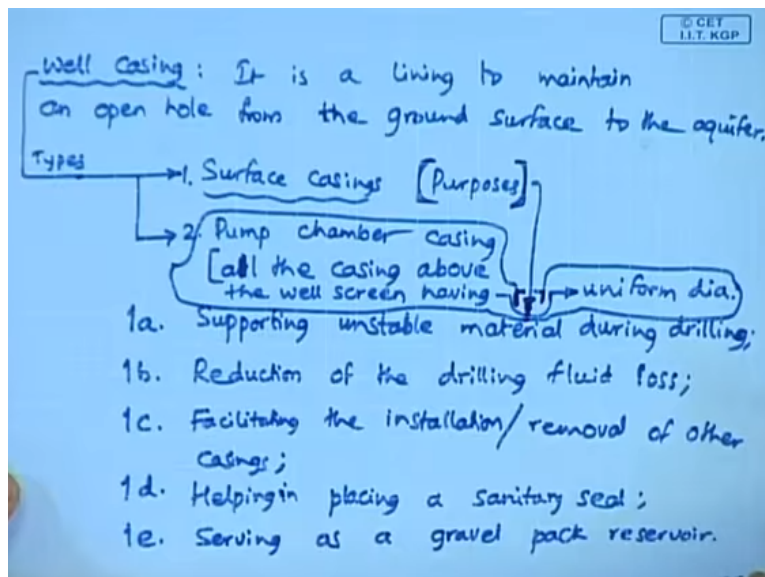 © CET
I.I.T. KGP
Well Casing: It is a lining to maintain
an open hole from the ground surface to the aquifer.
Types
1. Surface casings [Purposes]
2. Pump chamber casing
[all the casing above
the well screen having → uniform dia.]
1a. Supporting unstable material during drilling;
1b. Reduction of the drilling fluid loss;
1c. Facilitating the installation/removal of other
casings;
1d. Helping in placing a sanitary seal;
1e. Serving as a gravel pack reservoir.